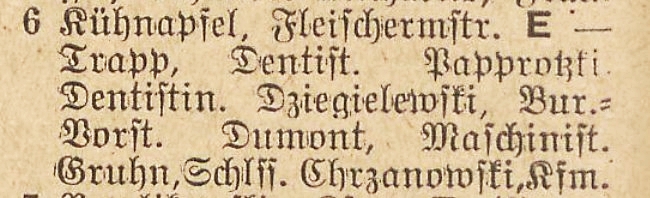 6 Kühnapfel, Fleischermstr. E —
Trapp, Dentist. Papprotzki
Dentistin. Dziegielewski, Bur.=
Vorst. Dumont, Maschinist.
Gruhn, Schlss. Chrzanowski, Kfm.